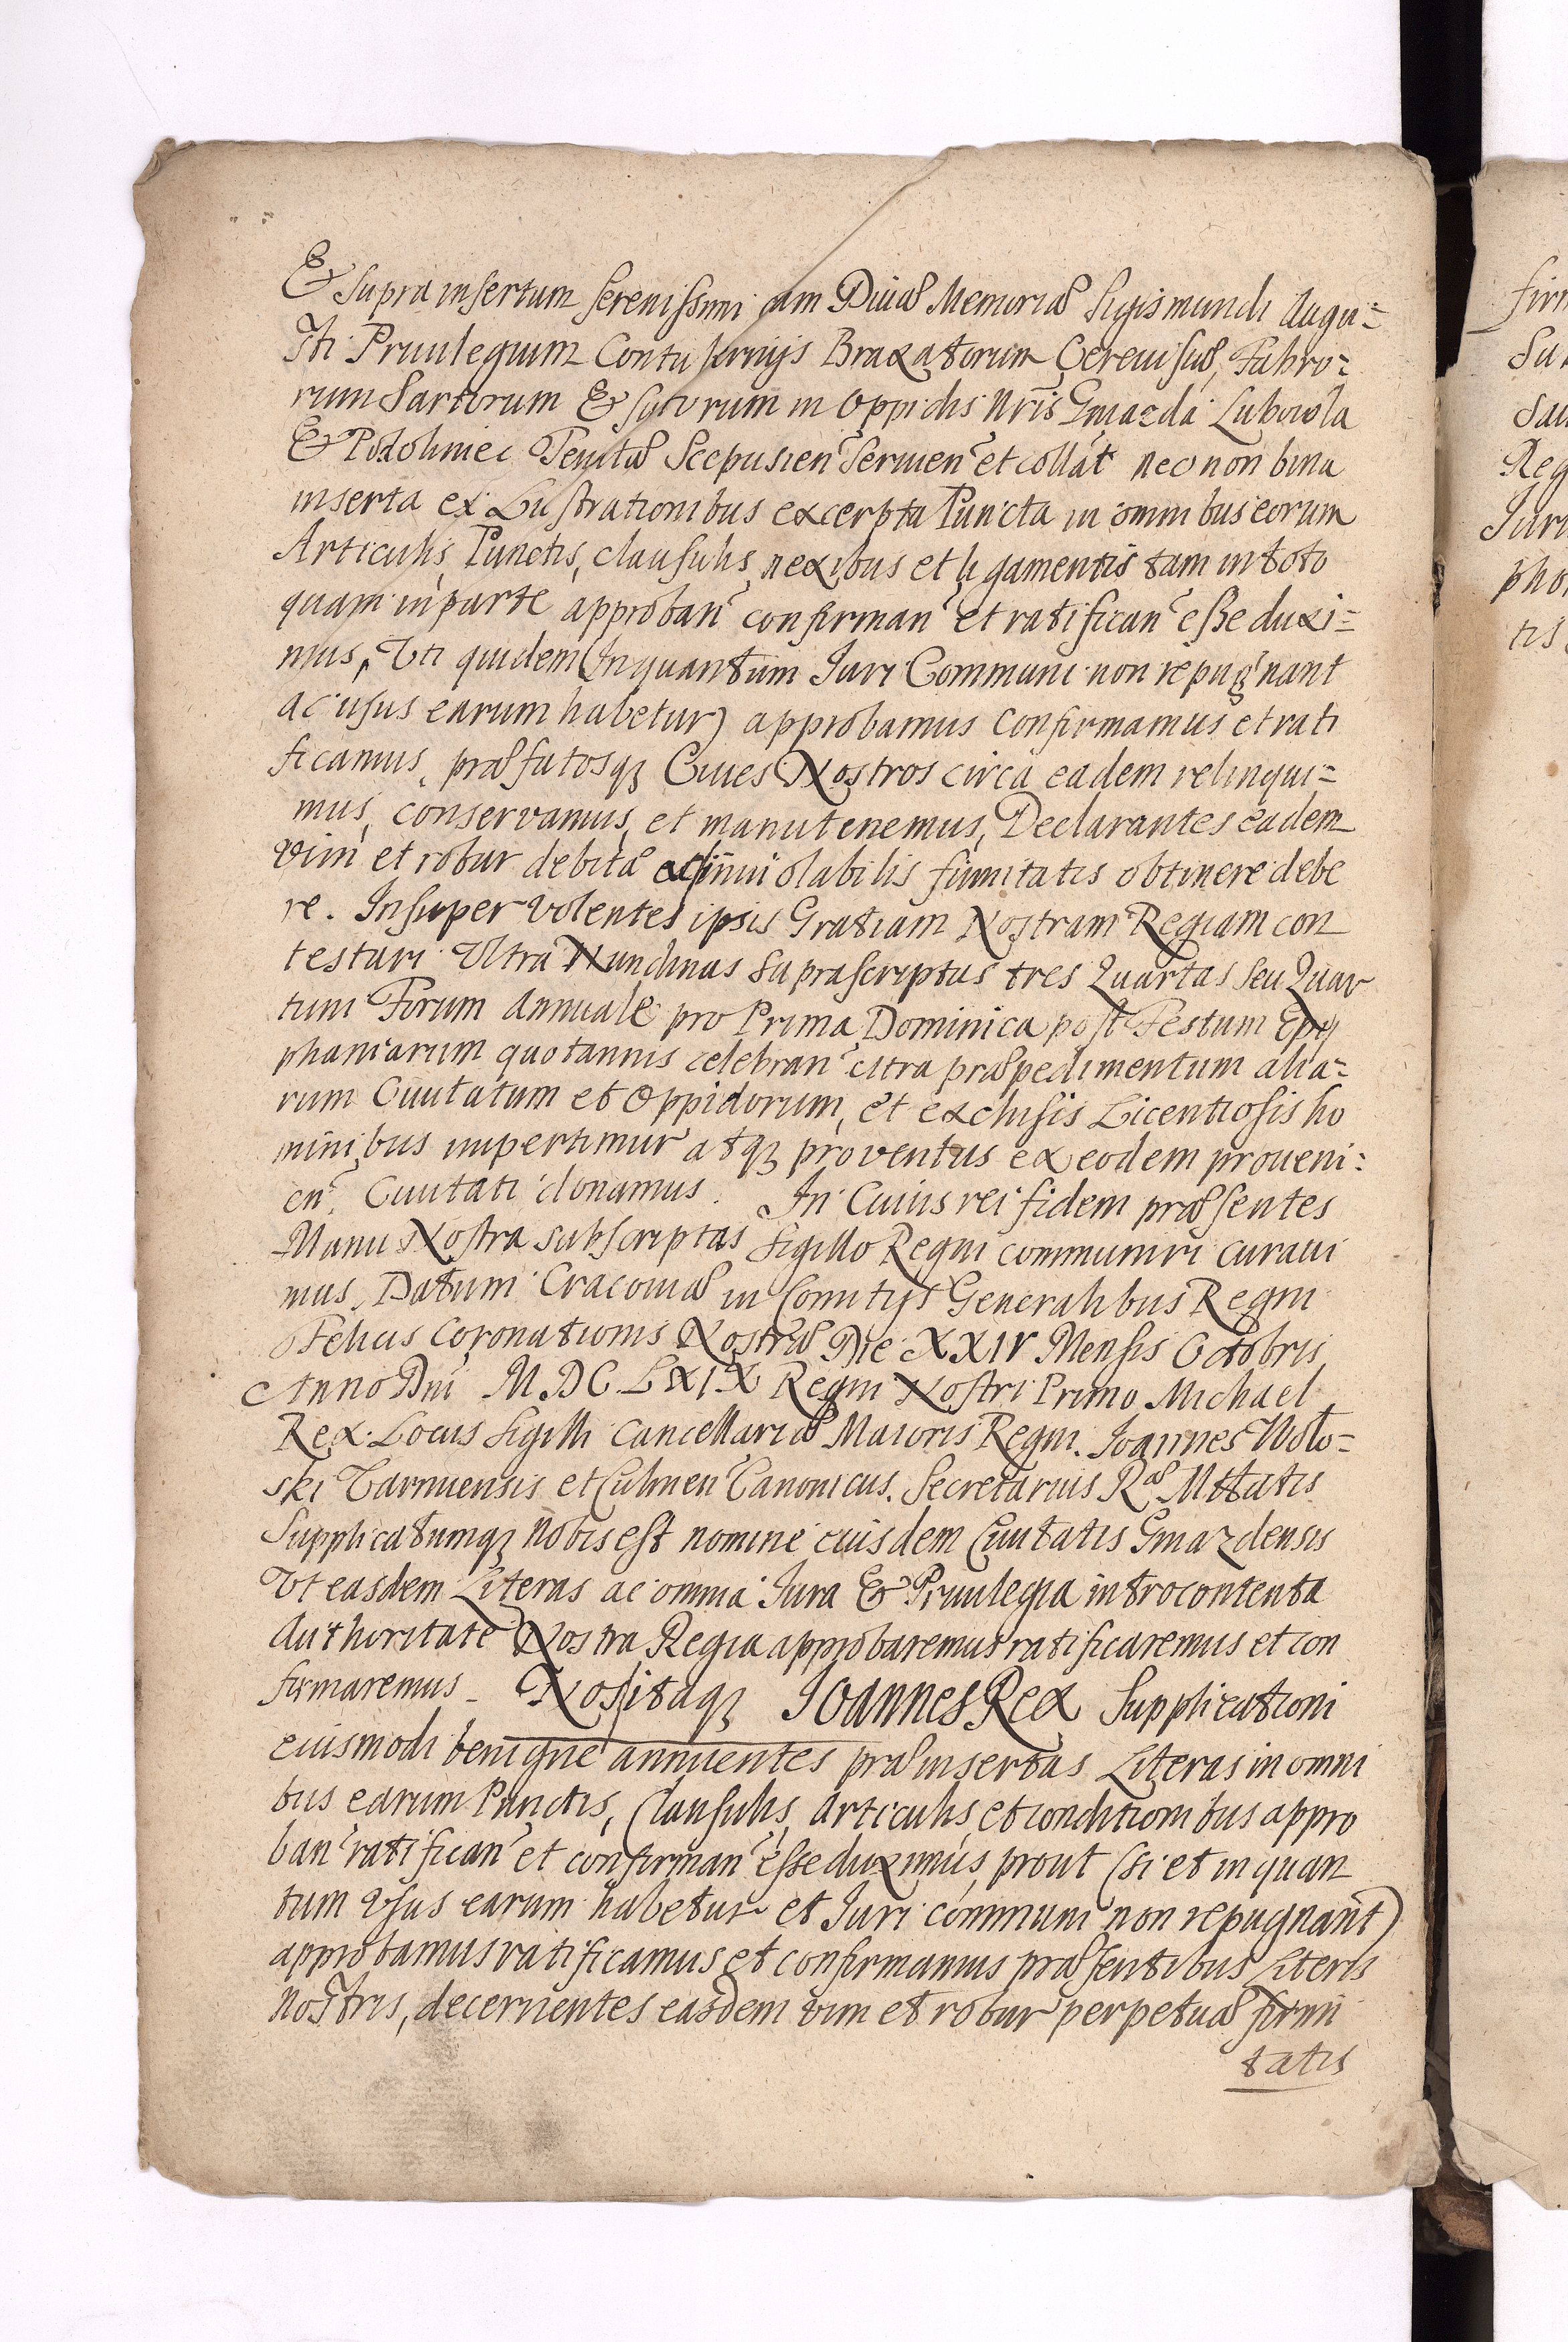 & supra insertum serenissimi olim Divæ Memoriæ Sigismundi Augu=
sti Privilegium Contuberniis Braxatorum Cerevisiæ, Fabro=
rum Sartorum & sutorum in Oppidis Nris Gniazda Lubowla
& Podoliniec Terræ Scepusien servien et collat necnon bina
inserta ex Lustrationibus excerpta Puncta in omnibus eorum
Articulis, Punctis, clausulis, nexibus et ligamentis tam in toto
quam in parte approban confirman et ratifican esse duxi=
mus, Uti quidem (Inquantum Juri Communi non repugnant
ac usus earum habetur) approbamus confirmamus et rati
ficamus, præfatosq Cives Nostros circa eadem relinqui=
mus, conservamus, et manutenemus, Declarantes eadem
vim et robur debitæ ac inviolabilis firmitatis obtinere debe
re. Insuper volentes ipsis Gratiam Nostram Regiam con
testari Ultra Nundinas suprascriptas tres Quartas seu Quar
tum Forum Annuale pro Prima Dominica post Festum Epi
phaniarum quotannis celebran citra præpedimentum alia=
rum Civitatum et Oppidorum, et exclusis Licentiosis ho
minibus impertimur atq proventus ex eodem proveni=
en Civitati donamus. In Cuius rei fidem præsentes
Manu Nostra subscriptas sigillo Regni communiri curavi
mus. Datum Cracoviæ in Comitijs Generalibus Regni
Felicis Coronationis Nostræ Die XXIV Mensis Octobris
Anno Dni M.DC.LXIX Regni Nostri Primo Michael
Rex. Locus sigilli Cancellariæ Maioris Regni. Joannes Wolo=
ski Varmiensis et Culmen Canonicus. Secretarius Ræ Mttatis
Supplicatumq nobis est nomine eiusdem Civitatis Gniazdensis
Ut easdem Literas ac omnia Jura & Privilegia introcontenta
Authoritate Nostra Regia approbaremus ratificaremus et con
firmaremus_ Nos itaq Joannes Rex Supplicationi
eiusmodi benigne annuentes præinsertas Literas in omni
bus earum Punctis, Clausulis, Articulis, et conditionibus appro
ban ratifican et confirman esse duximus, prout (si et in quan
tum usus earum habetur et Juri communi non repugnant)
approbamus ratificamus et confirmamus præsentibus Literis
nostris, decernentes easdem vim et robur perpetuæ firmi
tatis